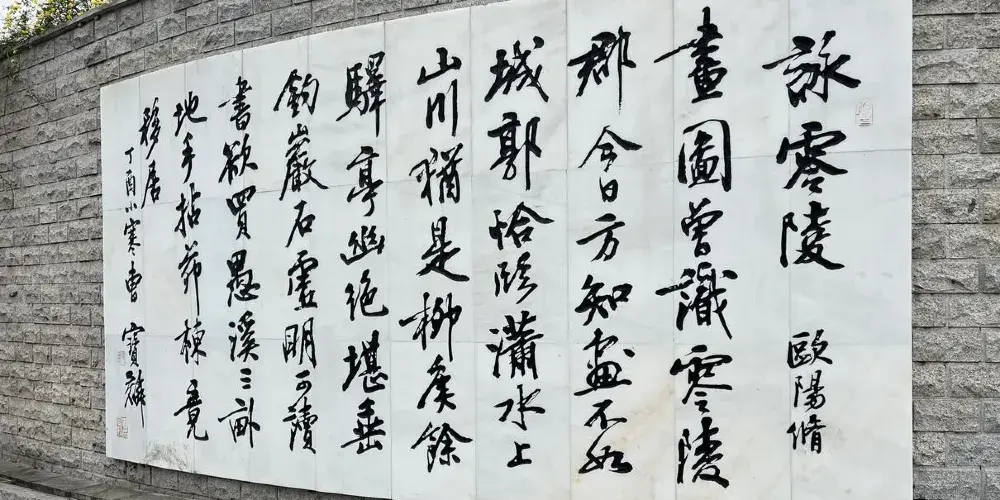 詠零陵 歐陽脩
畫圖曾識零陵
郡今日方知畫不如
城郭恰臨瀟水上
山川猶是柳矦餘
驛亭幽絶堪垂
釣巖石虛明可讀
書欲買愚溪三畝
地手拈茅棟竟
移居
丁酉小寒曹寶麟